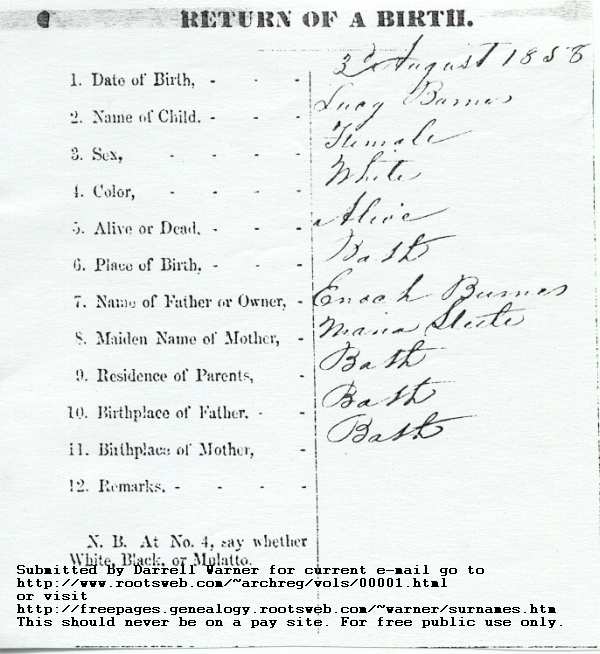 RETURN OF A BIRTH.
1. Date of Birth, - - - 3d August 1858
2. Name of Child. - - - Lucy Barnes
3. Sex, - - - - Female
4. Color, - - - - White
5. Alive or Dead, - - - Alive
6. Place of Birth, - - - Bath
7. Name of Father or Owner, - Enoch Burnes
8. Maiden Name of Mother, - Maria
9. Residence of Parents, - Bath
10. Birthplace of Father, - - Bath
11. Birthplace of Mother, - Bath
12. Remarks, - - - -
N. B. At No. 4, say whether
White, Black, or Mulatto.
Submitted By Darrell Warner for current e-mail go to
http://www.rootsweb.com/~archreg/vols/00001.html
or visit
http://freepages.genealogy.rootsweb.com/~warner/surnames.htm
This should never be on a pay site. For free public use only.